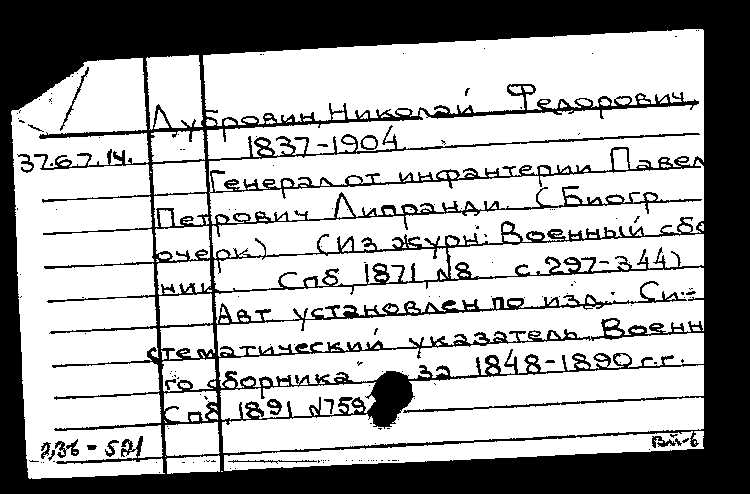 Дубровин, Николай Федорович,
1837-1904
37.6.7.14.
Генерал от инфантерии Павел
Петрович Липранди. (Биогр.
очерк) (Из журн: Военный сбо
ник. Спб, 1871, №8 с.297-344)
Авт установлен по изд.: Си-
стематический указатель Военн
го сборника за 1848-1890 г.г.
Спб, 1891 №759